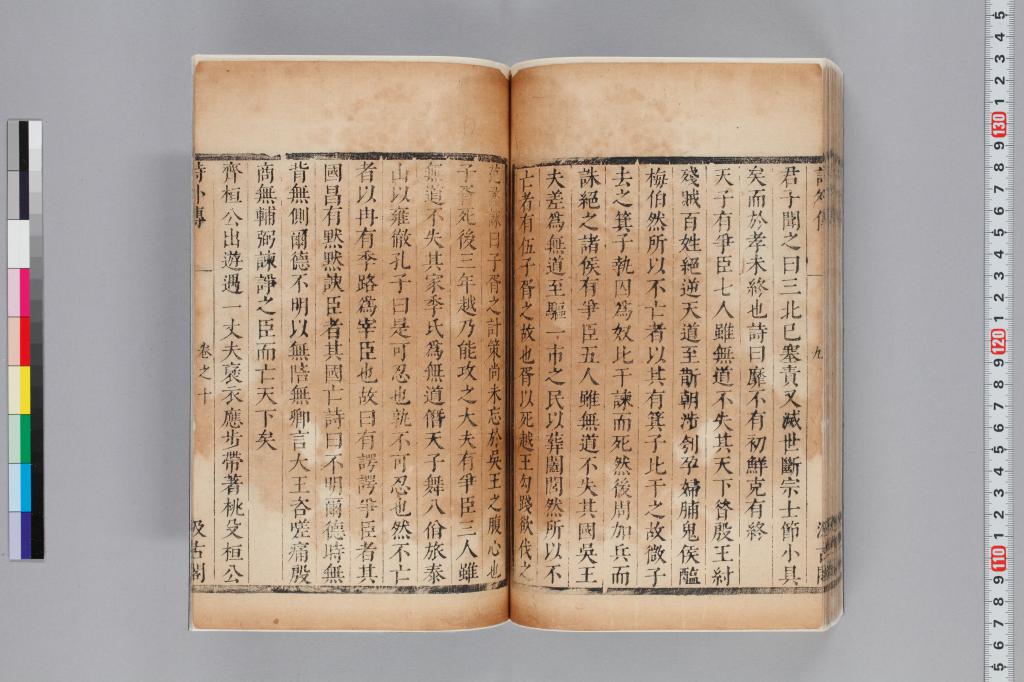 君子聞之曰三北已塞責又滅世斷宗士節小具
矣而於孝未終也詩曰靡不有初鮮克有終
天子有爭臣七人雖無道不失其天下昔殷王紂
殘賊百姓絕逆天道至斮朝涉刳孕婦脯鬼侯醢
梅伯然所以不亡者以其有箕子比干之故微子
去之箕子執囚為奴比干諫而死然後周加兵而
誅絕之諸侯有爭臣五人雖無道不失其國吳王
夫差為無道至驅一市之民以葬闔閭然所以不
亡者有伍子胥之故也胥以死越王勾踐欲伐之
諫曰子胥之計策尚未忘於吳王之腹心也
子胥死後三年越乃能攻之大夫有爭臣三人雖
無道不失其家季氏為無道僭天子舞八佾旅泰
山以雍徹孔子曰是可忍也孰不可忍也然不亡
者以冉有季路為宰臣也故曰有諤諤爭臣者其
國昌有默默諛臣者其國亡詩曰不明爾德時無
背無側爾德不明以無陪無卿言大王咨嗟痛殷
商無輔弼諫諍之臣而亡天下矣
齊桓公出遊遇一丈夫褒衣應步帶著桃殳桓公
詩外傳
卷之十
汲古閣